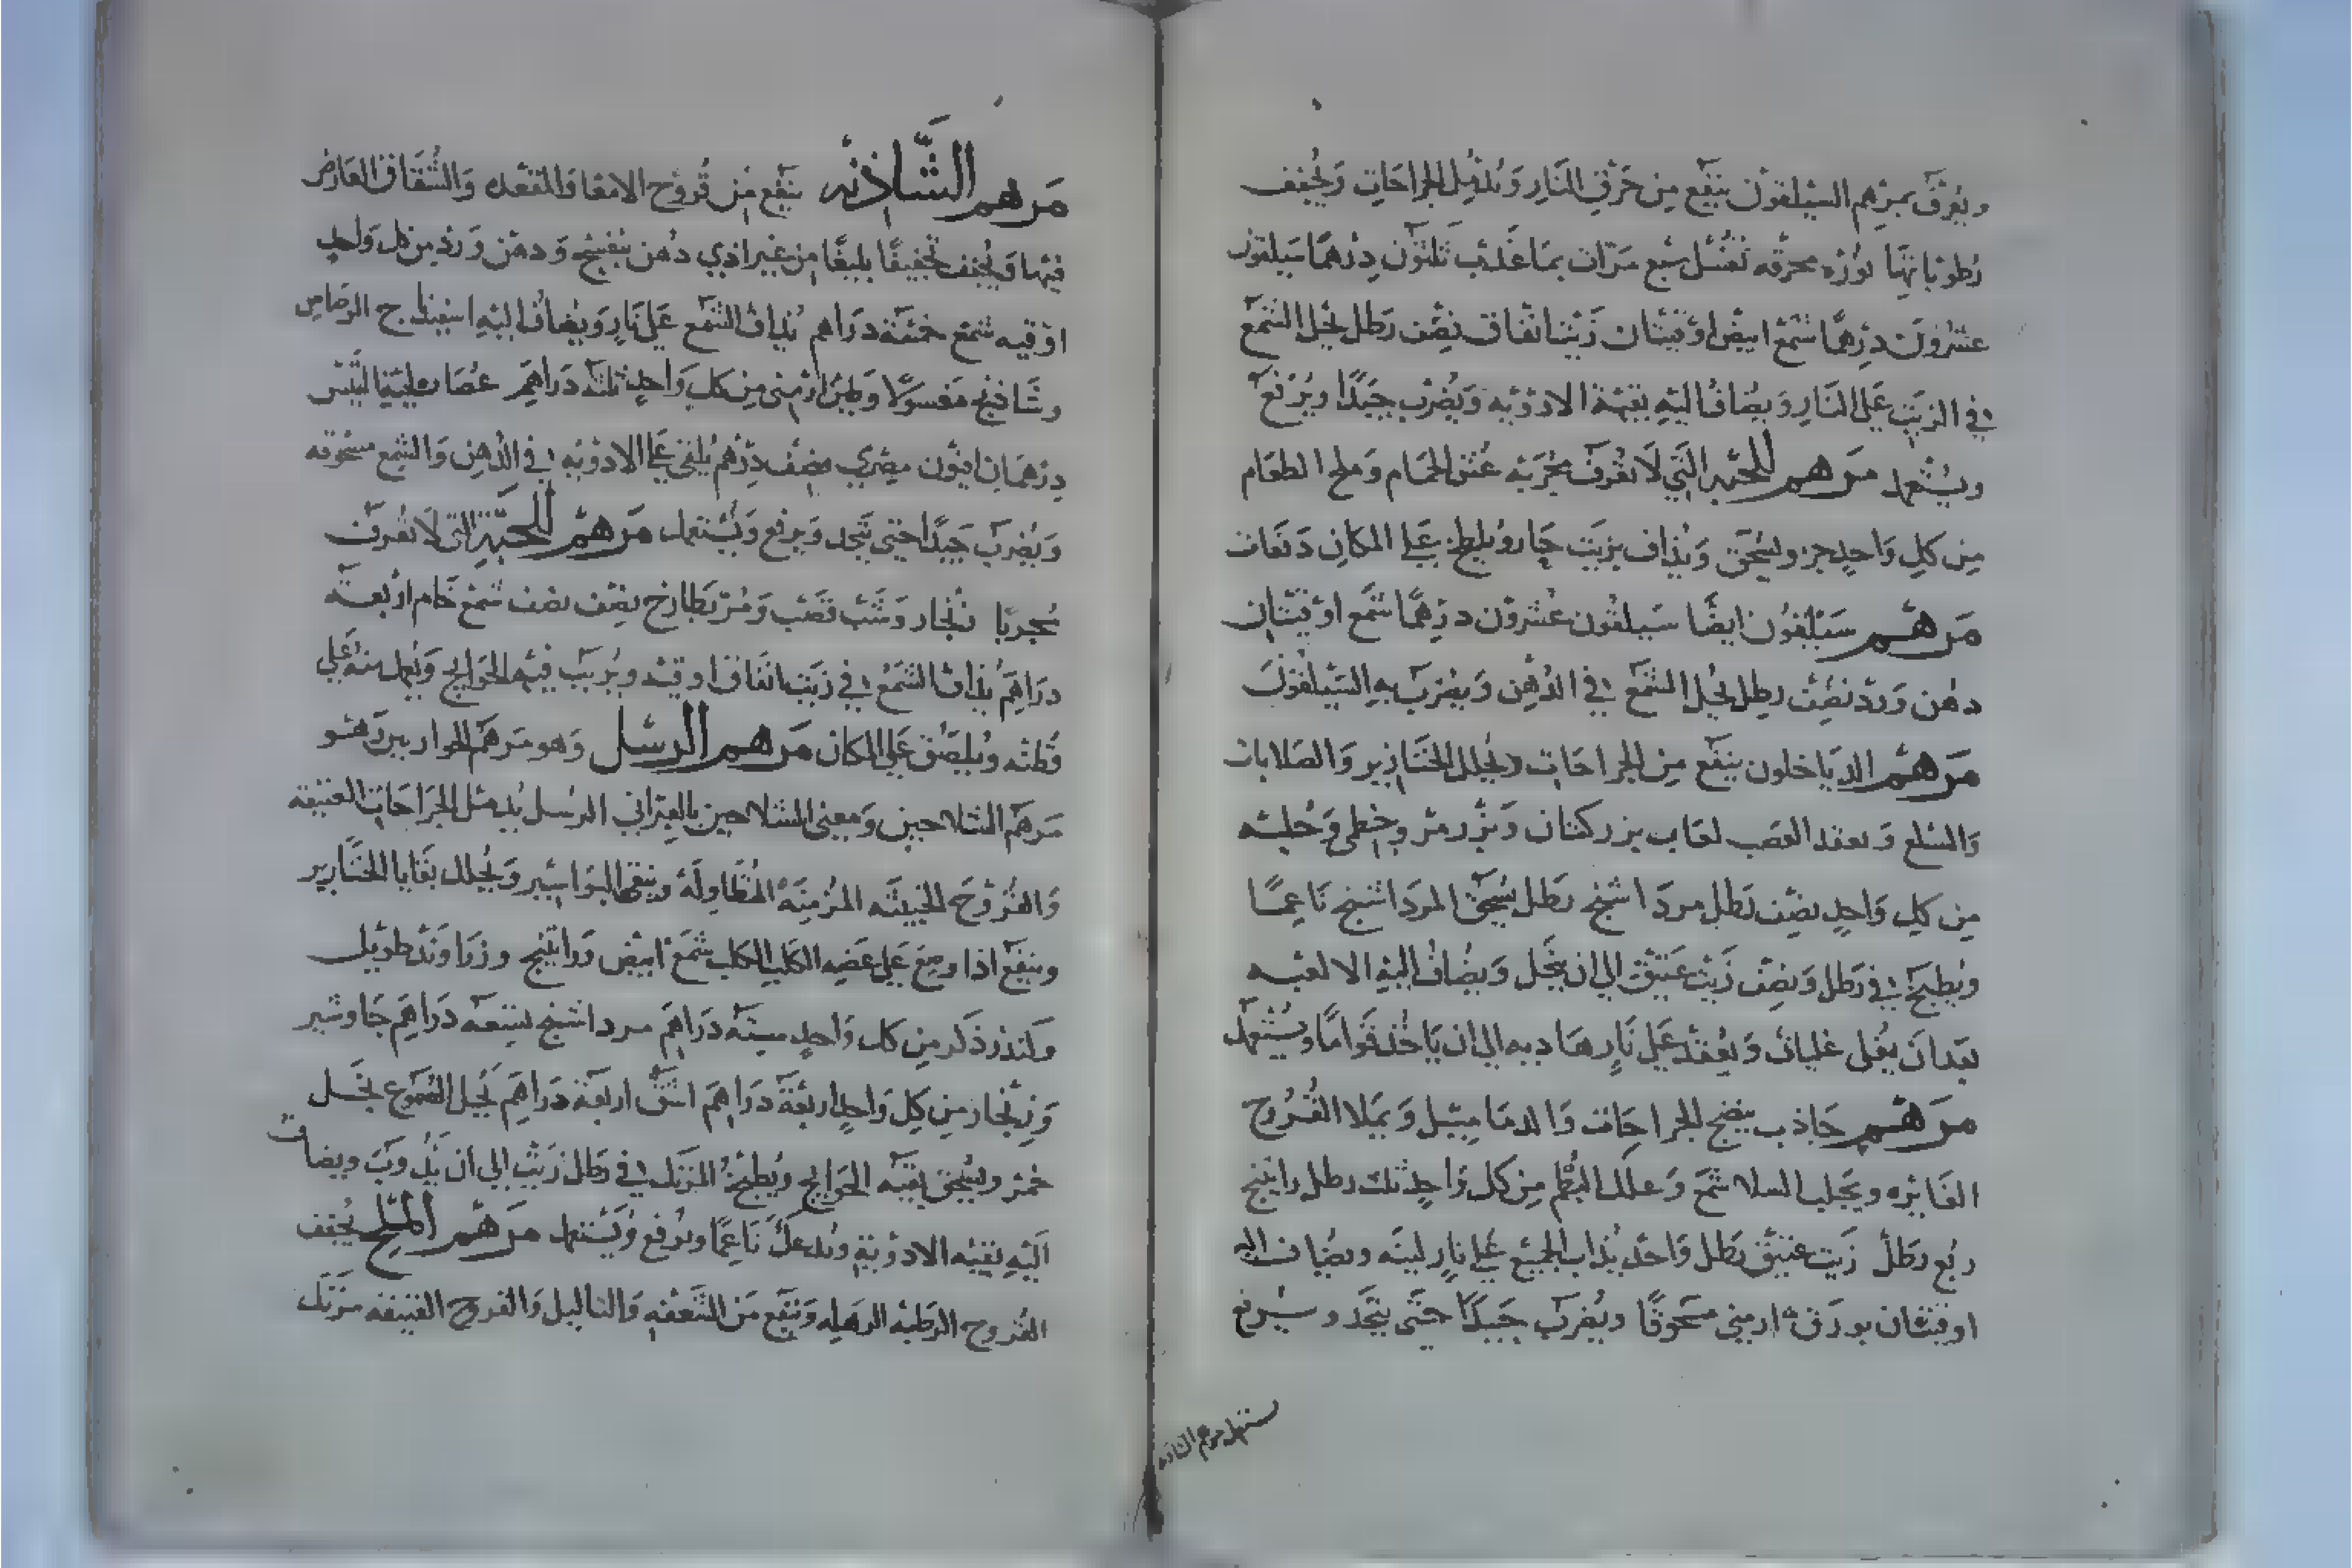 ويعرف بمرهم السيلقون ينفع من حرق النار ويدمل الجراحات ويجفف
رطوباتها نوره محرقه تغسل سبع مرات بما عذب ثلثون درهما سيلقون
عشرون درهما شمع ابيض اوقيتان زيتا نفاق نصف رطل يحل الشمع
في الزيت على النار ويضاف اليه بقية الادويه ويضرب جيدا ويرفع
ويستعمل مرهم للحبه التي لا تعرف مجربه عتق الحمام وملح الطعام
من كل واحد جز ويسحق ويذاف بزيت حار ويلطخ على المكان دفعات
مرهم سيلقون ايضا سيلقون عشرون درهما شمع اوقيتان
دهن ورد نصف رطل يحل الشمع في الدهن ويضرب به السيلقون
مرهم الدياخلون ينفع من الجراحات ويحلل الخنازير والصلابات
والسلع وتعقد العصب لعاب بزر كتان وبزر مر وخطمي وحلبه
من كل واحد نصف رطل مرداشنج رطل يسحق المرداشنج ناعما
ويطبخ في رطل ونصف زيت عتيق الى ان ينحل ويضاف اليه الالعبه
بعد ان يغلى غليات ويعقد على نار هاديه الى ان ياخذ قواما ويستعمل
مرهم جاذب ينضج الجراحات والدماميل ويملا القروح
الغايره ويجلب السلا شمع وعلك البطم من كل واحد ثلث رطل راتينج
ربع رطل زيت عتيق رطل واحد يذاب الجميع على نار لينه ويضاف اليه
اوقيتان بورق ارمني مسحوقا ويضرب جيدا حتى يتحد ويرفع
يستعمل مرهم الشاذنه
مرهم الشاذنه ينفع من قروح الامعا والمقعده والشقاق العارض
فيها ويجفف تجفيفا بليغا من غير اذي دهن بنفسج ودهن ورد من كل واحد
اوقيه شمع خمسة دراهم يذاف الشمع على نار ويضاف اليه اسفيداج الرصاص
وشاذنج مغسولا وطين ارمني من كل واحد ثلثه دراهم عصارة لحية التيس
درهمان افيون مصري نصف درهم يلقي على الادويه في الدهن والشمع مسحوقه
ويضرب جيدا حتى يتحد ويرفع ويستعمل مرهم للحبة التي لا تعرف
مجربا زنجار وشب قصب ومر بطارخ نصف نصف شمع خام اربعة
دراهم يذاف الشمع في زيت انفاق اوقيه ويريب فيه الحوايج ويعمل منه على
قطنه ويلصق على المكان مرهم الرسل وهو مرهم الحواريين وهو
مرهم الشلاحين ومعنى الشلاحين بالعبراني الرسل يدمل الجراحات العتيقه
والقروح الخبيثه المزمنه المتطاوله وينقى البواسير ويحلل بقايا الخنازير
وينفع اذا وضع على عضه الكلب الكلب شمع ابيض وراتينج وزراوند طويل
وكندر ذكر من كل واحد ستة دراهم مرداشنج تسعه دراهم جاوشير
وزنجار من كل واحد اربعة دراهم اشق اربعة دراهم يحل الصموغ بخل
خمر ويسحق بقيه الحوايج ويطبخ المرتك في رطل زيت الى ان يذوب ويضاف
اليه بقيه الادويه ويدعك ناعما ويرفع ويستعمل مرهم الملح يجفف
القروح الرطبه الرهله وينفع من التعفنه والثاليل والقروح العتيقه مرتك